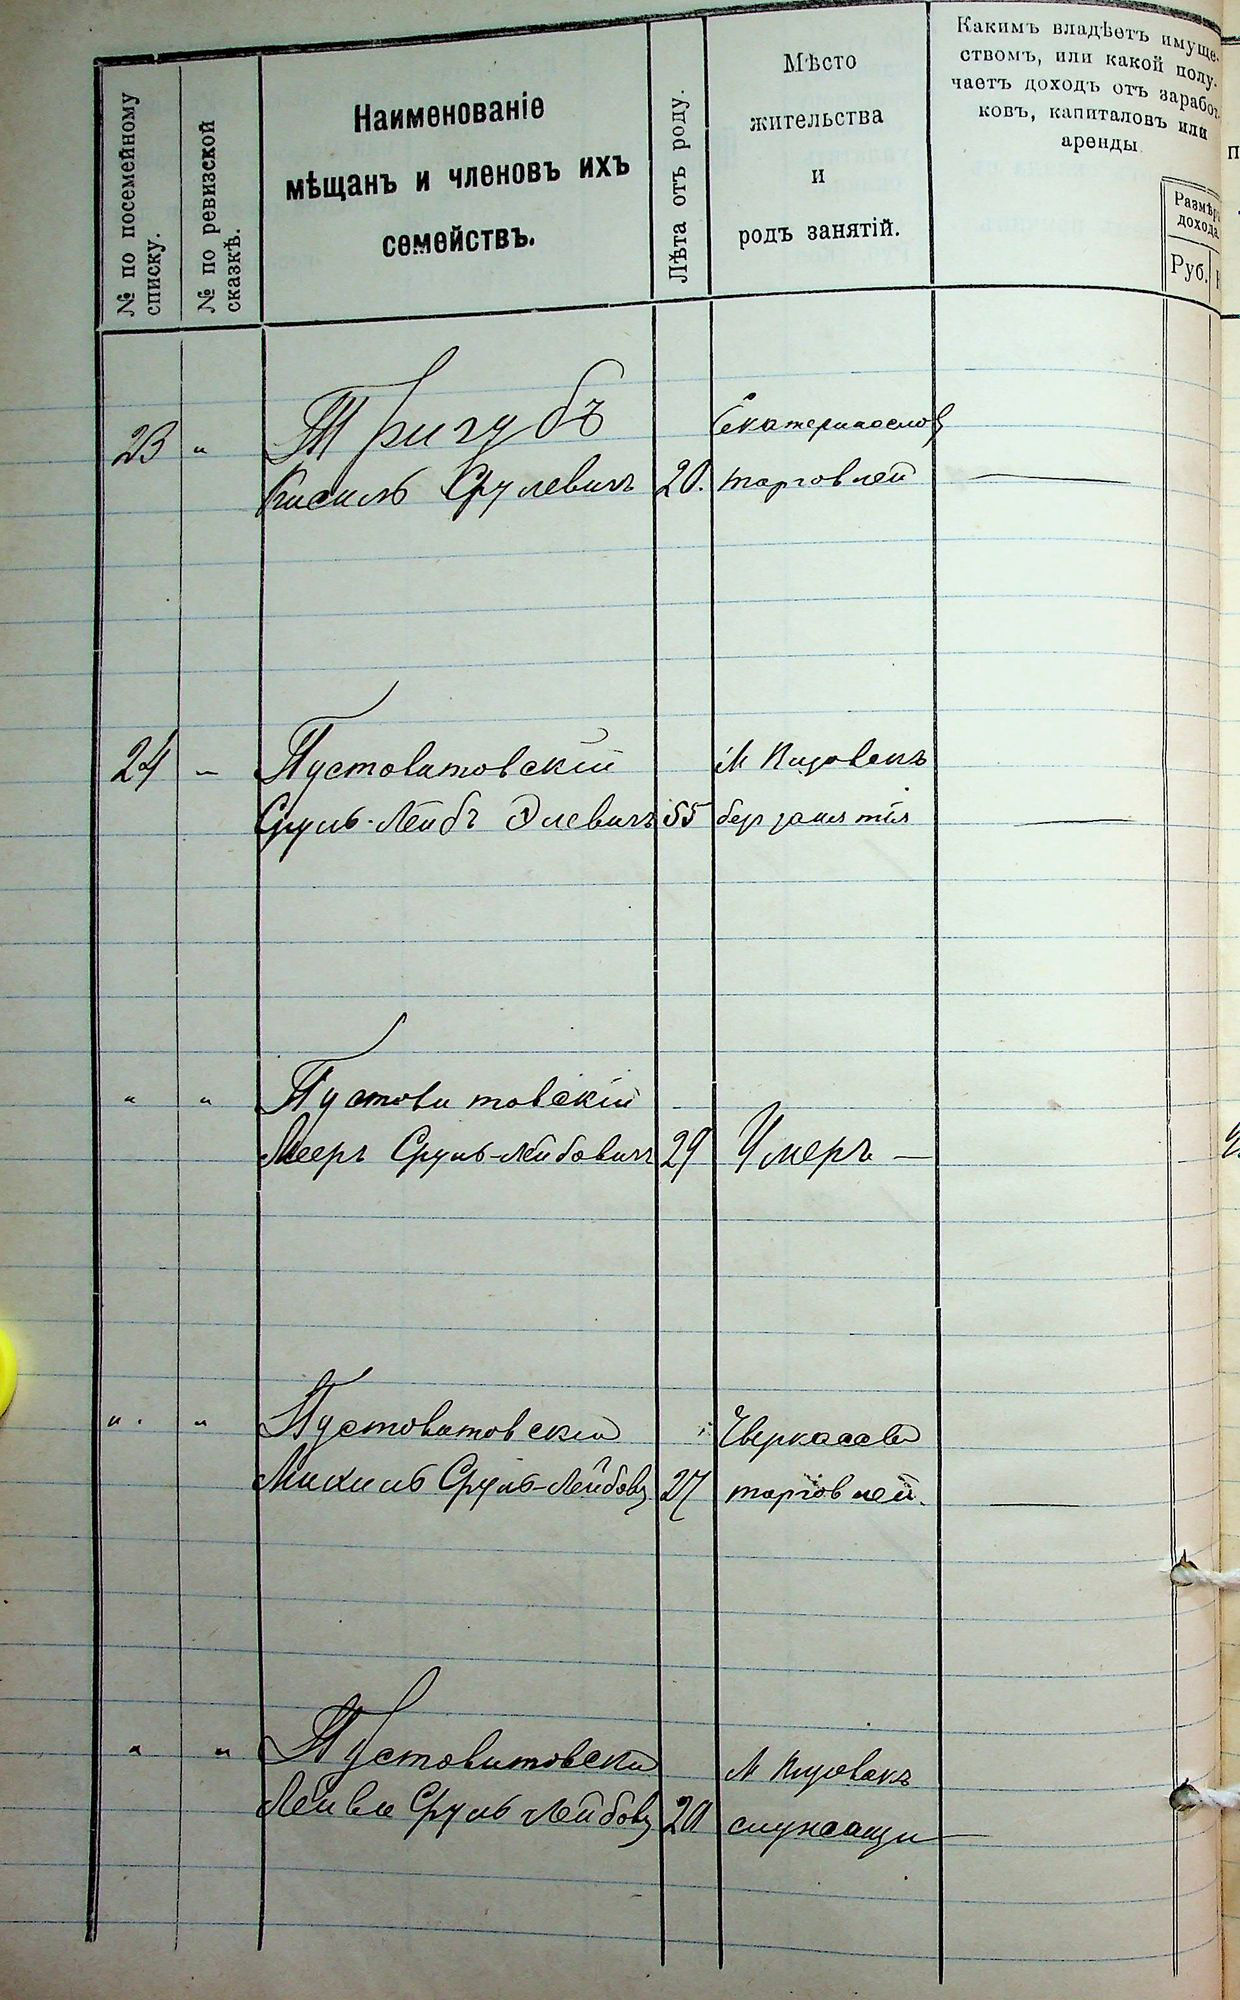 № по посемейному
списку.
№ по ревизской
сказкѣ.
Наименованіе
мѣщанъ и членовъ ихъ
семействъ.
Лѣта отъ роду.
Мѣсто
жительства
и
родъ занятій.
Какимъ владѣетъ имуще-
ствомъ, или какой полу-
чаетъ доходъ отъ зарабо-
ковъ, капиталовъ или
аренды
Размѣръ
дохода
Руб.
23 " Тригубъ Екатеринослов
Кисиль Срулевичъ 20. торговлей —
24 – Пустовитовскій М
Сруль-Лейбъ Элевичъ 55 без занятія —
" " Пустовитовскій
Мееръ Сруль-Лейбовичъ 29 Умеръ —
" " Пустовитовскій
Михиль Сруль-Лейбов 27 торговлей. —
" " Пустовитовски М
Сруль Лейбов 20 служащи —